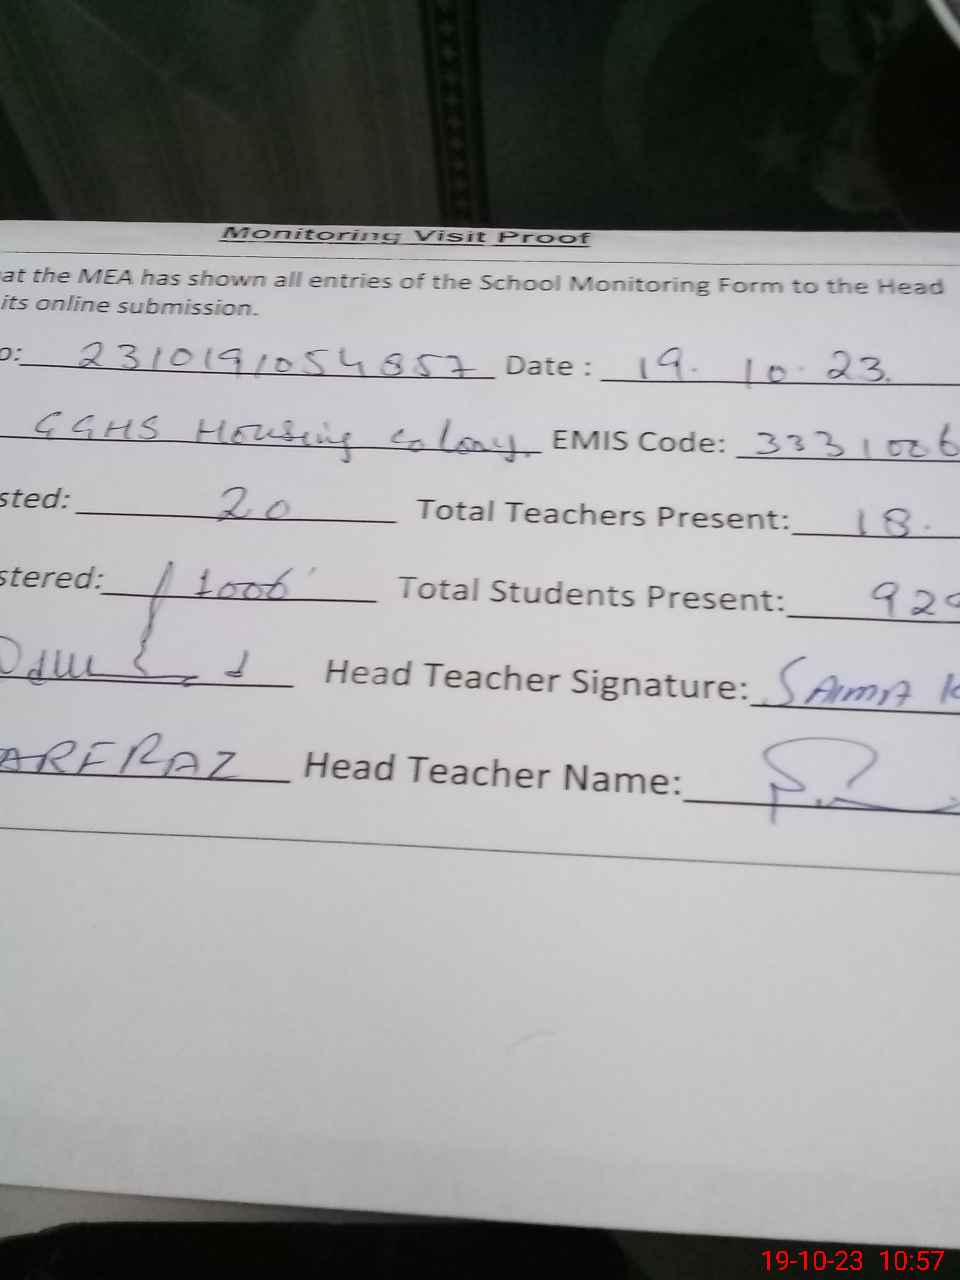 Monitoring Visit Proof
at the MEA has shown all entries of the School Monitoring Form to the Head
its online submission.
o: 2310191054857 Date : 19. 10. 23.
GGHS Housing Colony. EMIS Code: 3331006
sted: 20 Total Teachers Present: 18.
stered: 1006 Total Students Present: 92
Head Teacher Signature: SAIMA K
ARFRAZ Head Teacher Name:
19-10-23 10:57